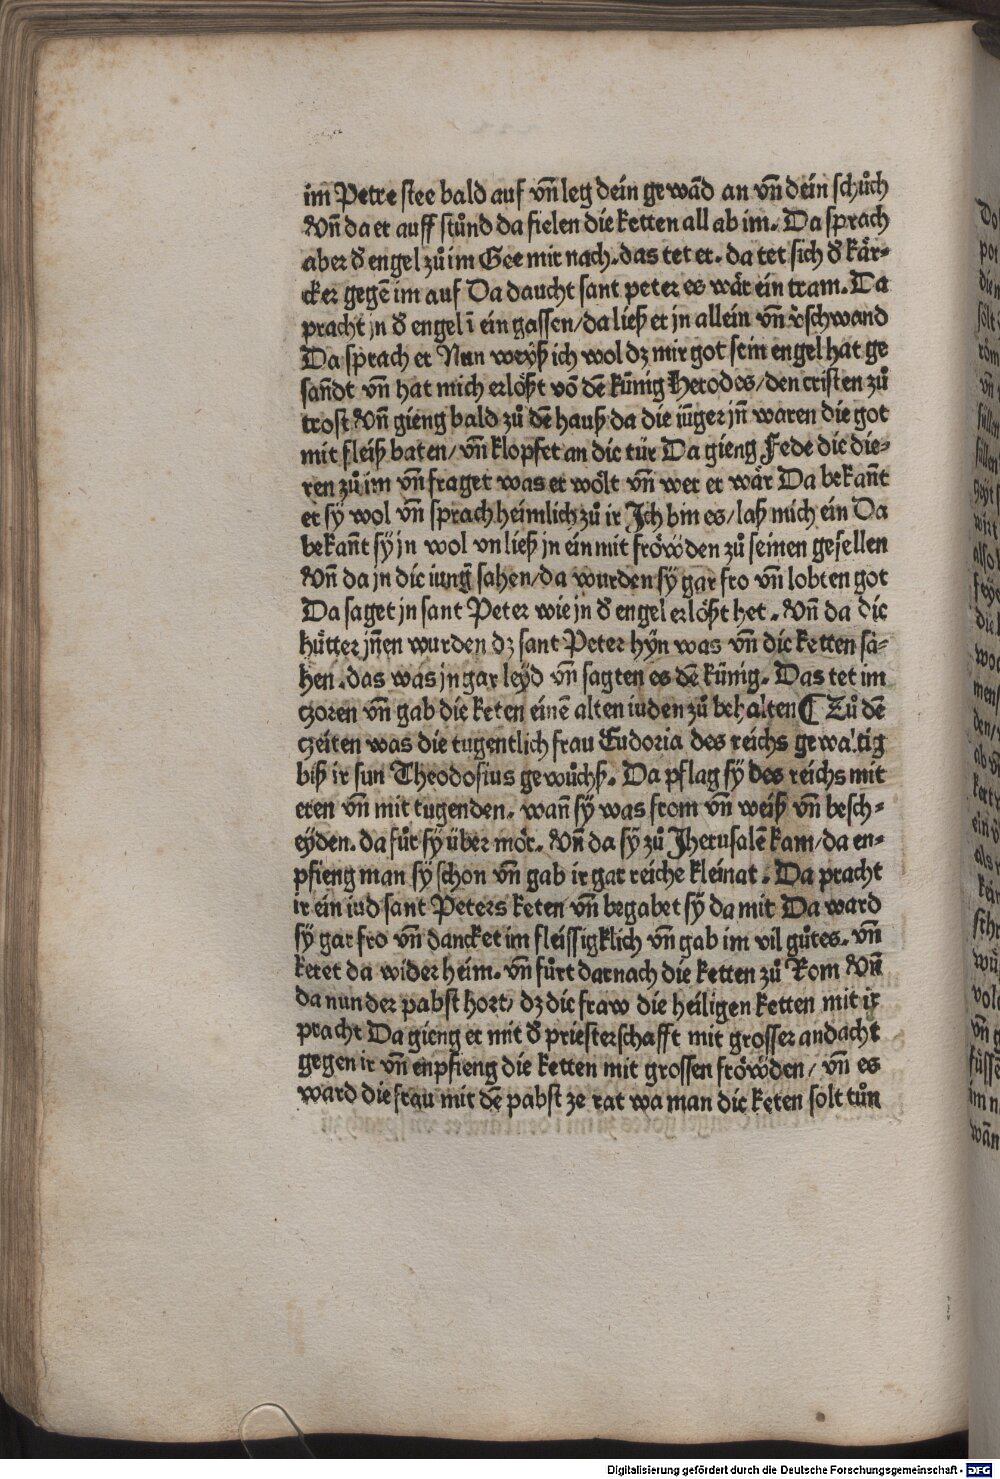 im Petre stee bald auf vñ leg dein gewād an vñ dein schůch
Vñ da er auff stůnd da fielen die ketten all ab im. Da sprach
aber d̕ engel zů im Gee mir nach. das tet er. da tet sich d̕ kår-
cker gegē im auf Da daucht sant peter es wår ein tram. Da
pracht jn d̕ engel ī ein gassen/ da ließ er jn allein vñ v̕schwand
Da sprach er Nun weyß ich wol dz mir got sein engel hat ge
sañdt vñ hat mich erlößt vō dē künig Herodes/ den cristen zů
trost Vñ gieng bald zů dē hauß da die iūger jñ waren die got
mit fleiß baten/ vñ klopfet an die tür Da gieng Fede die die-
ren zů im vñ fraget was er wölt vñ wer er wår Da bekañt
er sy wol vñ sprach heimlich zů ir Ich bin es/ laß mich ein Da
bekañt sy jn wol vn ließ jn ein mit fröwden zů seinen gesellen
Vñ da jn die iung̃ sahen/ da wurden sy gar fro vñ lobten got
Da saget jn sant Peter wie jn d̕ engel erlößt het. Vñ da die
hütter jñen wurden dz sant Peter hyn was vñ die ketten sa-
hen. das was jn gar leyd vñ sagten es dē künig. Das tet im
czoren vñ gab die keten einē alten iuden zů behalten ¶ Zů dē
czeiten was die tugentlich frau Eudoxia des reichs gewaltig
biß ir sun Theodosius gewůchß. Da pflag sy des reichs mit
eren vñ mit tugenden. wañ sy was from vñ weiß vñ besch-
eyden. da fůr sy über mör. Vñ da sy zů Jherusalē kam/ da en-
pfieng man sy schon vñ gab ir gar reiche kleinat. Da pracht
ir ein iud sant Peters keten vñ begabet sy da mit Da ward
sy gar fro vñ dancket im fleissigklich vñ gab im vil gůtes. vñ
keret da wider heim. vñ fůrt darnach die ketten zů Rom Vñ
da nun der pabst hort/ dz die fraw die heiligen ketten mit ir
pracht Da gieng er mit d̕ priesterschafft mit grosser andacht
gegen ir vñ enpfieng die ketten mit grossen fröwden/ vñ es
ward die frau mit dē pabst ze rat wa man die keten solt tůn
Digitalisierung gefördert durch die Deutsche Forschungsgemeinschaft - DFG